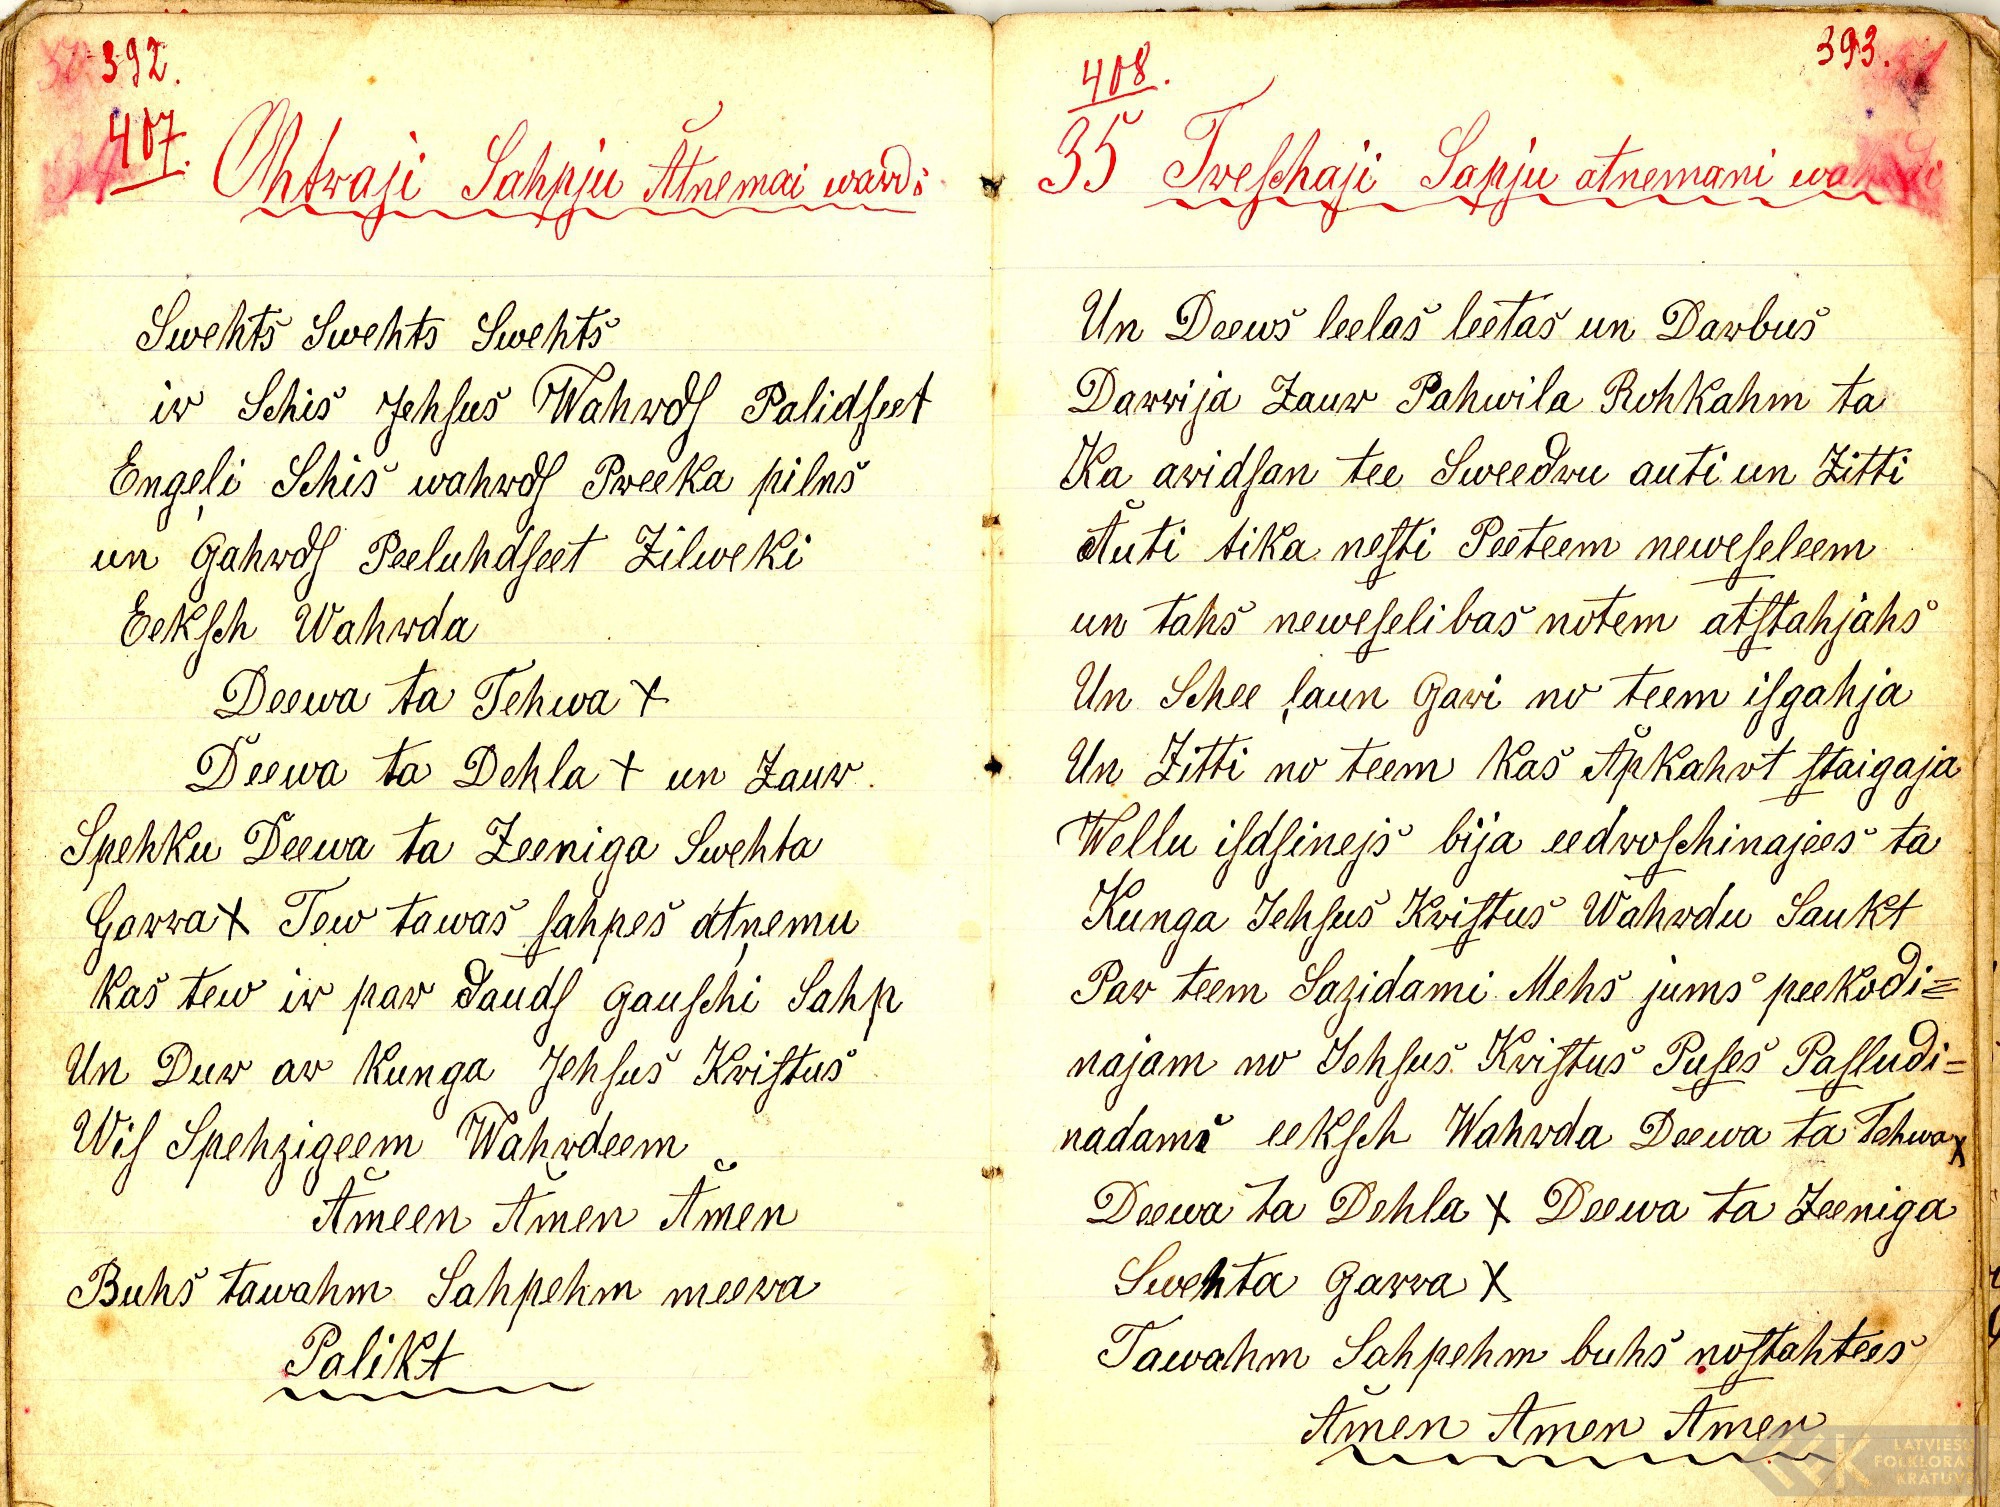 392.
407.
Ohtraji Sahpju Atnemai wardi
Swehts Swehts Swehts
ir Schis Jehsus Wahrds Palidseet
Engeļi Schis wahrds Preeka pilns
un Gahrds Peeluhdseet Zilweki
Eeksch Wahrda
Deewa ta Tehwa +
Deewa ta Dehla + un Zaur
Spehku Deewa ta Zeeniga Swehta
Garra + Tew tawas sahpes atņemu
kas tew ir par dauds gauschi Sahp
Un Dur ar kunga Jehsus Kristus
Wis Spehzigeem Wahrdeem
Ameen Amen Amen
Buhs tawahm Sahpehm meera
Palikt
393.
408.
35 Treschaji Sapju atnemani wahrdi
Un Deews leelas leetas un Darbus
Darrija Zaur Pahwila Rohkahm ta
Ka aridsan tee Sweedru auti un Zitti
Auti tika nesti Peeteem neweseleem
un tahs neweselibas notem atstahjahs
Un Schee ļaun Gari no teem isgahja
Un Zitti no teem Kas Apkahrt staigaja
Wellu isdsinejs bija eedroschinajees ta
Kunga Jehsus Kristus Wahrdu Saukt
Par teem Sazidami Mehs jums peekodi=
najam no Jehsus Kristus Puses Pasludi=
nadami eeksch Wahrda Deewa ta Tehwa +
Deewa ta Dehla + Deewa ta Zeeniga
Swehta Garra +
Tawahm Sahpehm buhs nostahtees
Amen Amen Amen
LATVIEŠU
FOLKLORAS
KRĀTUVE